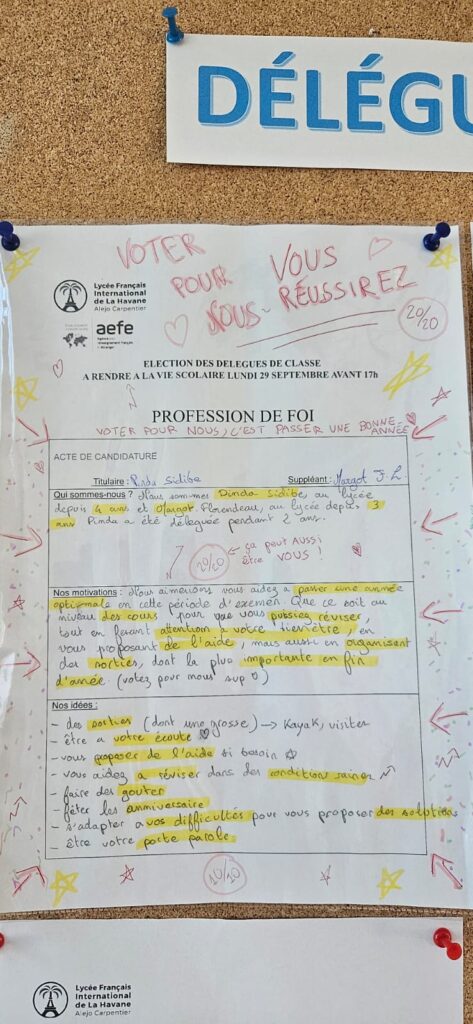 DÉLÉGU
VOTER
POUR
NOUS
VOUS
RÉUSSIREZ
20/20
Lycée Français
International
de La Havane
Alejo Carpentier
aefe
Agence pour
l'enseignement français
à l'étranger
ELECTION DES DELEGUES DE CLASSE
A RENDRE A LA VIE SCOLAIRE LUNDI 29 SEPTEMBRE AVANT 17h
PROFESSION DE FOI
VOTER POUR NOUS, C'EST PASSER UNE BONNE
ANNÉE
ACTE DE CANDIDATURE
Titulaire : Dinda Sidibe Suppléant : Margot F. L.
Qui sommes-nous ? Nous sommes Dinda Sidibe, au lycée
depuis 4 ans et Margot Florendeau, au lycée depuis 3
ans Dinda a été déléguée pendant 2 ans.
20/20 ← ça peut AUSSI
être VOUS !
Nos motivations : Nous aimerions vous aidez a passer une année
optimale en cette période d'examen. Que ce soit au
niveau des cours pour que vous puissiez réviser,
tout en ferant attention a votre bienêtre, en
vous proposant de l'aide, mais aussi en organisent
des sorties, dont la plus importante en fin
d'année. (votez pour nous sup ♡)
Nos idées :
- des sorties (dont une grosse) → Kayak, visites
- être a votre écoute
- vous proposer de l'aide si besoin
- vous aidez a réviser dans des condition saines
- faire des gouter
- fêter les anniversaire
- s'adapter a vos difficultés pour vous proposer des solutions
- être votre porte parole
10/10
Lycée Français
International
de La Havane
Alejo Carpentier